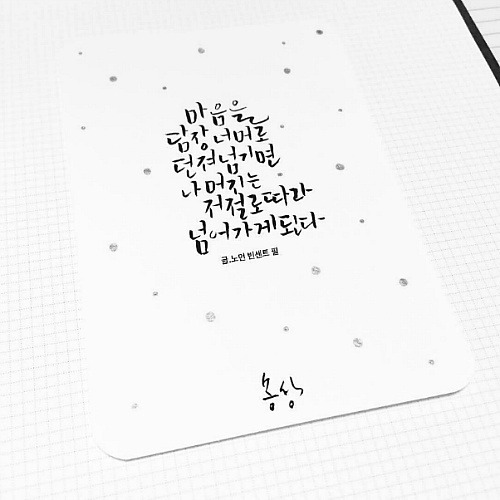 마음을
담장 너머로
던져넘기면
나머지는
저절로따라
넘어가게된다
글.노먼 빈센트 필
몽상